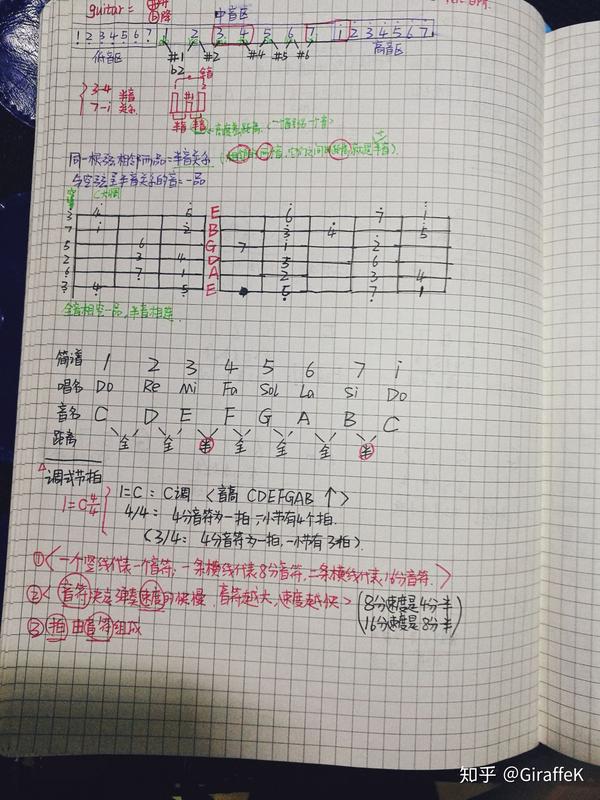 guitar =
中音区
1 2 3 4 5 6 7 1 2 3 4 5 6 7 1 2 3 4 5 6 7
低音区 #1 #2 #4 #5 #6 高音区
b2 全音
3-4 半音
7-i 关系 #1
半音 半音
同一根弦相邻两品=半音关系
与空弦呈半音关系的音=一品
C大调
3 4 5 E 6 7 1
7 1 2 B 3 4 5
5 6 G 7 1 2
2 3 4 D 5 6
6 7 1 A 2 3 4
3 4 5 E 5 7 1
全音相空一品,半音相连.
简谱 1 2 3 4 5 6 7 i
唱名 Do Re Mi Fa Sol La Si Do
音名 C D E F G A B C
距离 全 全 半 全 全 全 半
调式节拍
1=C 4/4
1=C : C调 <音高 CDEFGAB ↑>
4/4: 4分音符为一拍,一小节有4个拍.
(3/4: 4分音符为一拍,一小节有3拍).
①<一个竖线代表一个音符,一条横线代表8分音符,二条横线代表16分音符.>
②<音符决定弹奏速度的快慢,音符越大,速度越快> (8分速度是4分半
16分速度是8分半)
③拍由音符组成
知乎 @GiraffeK